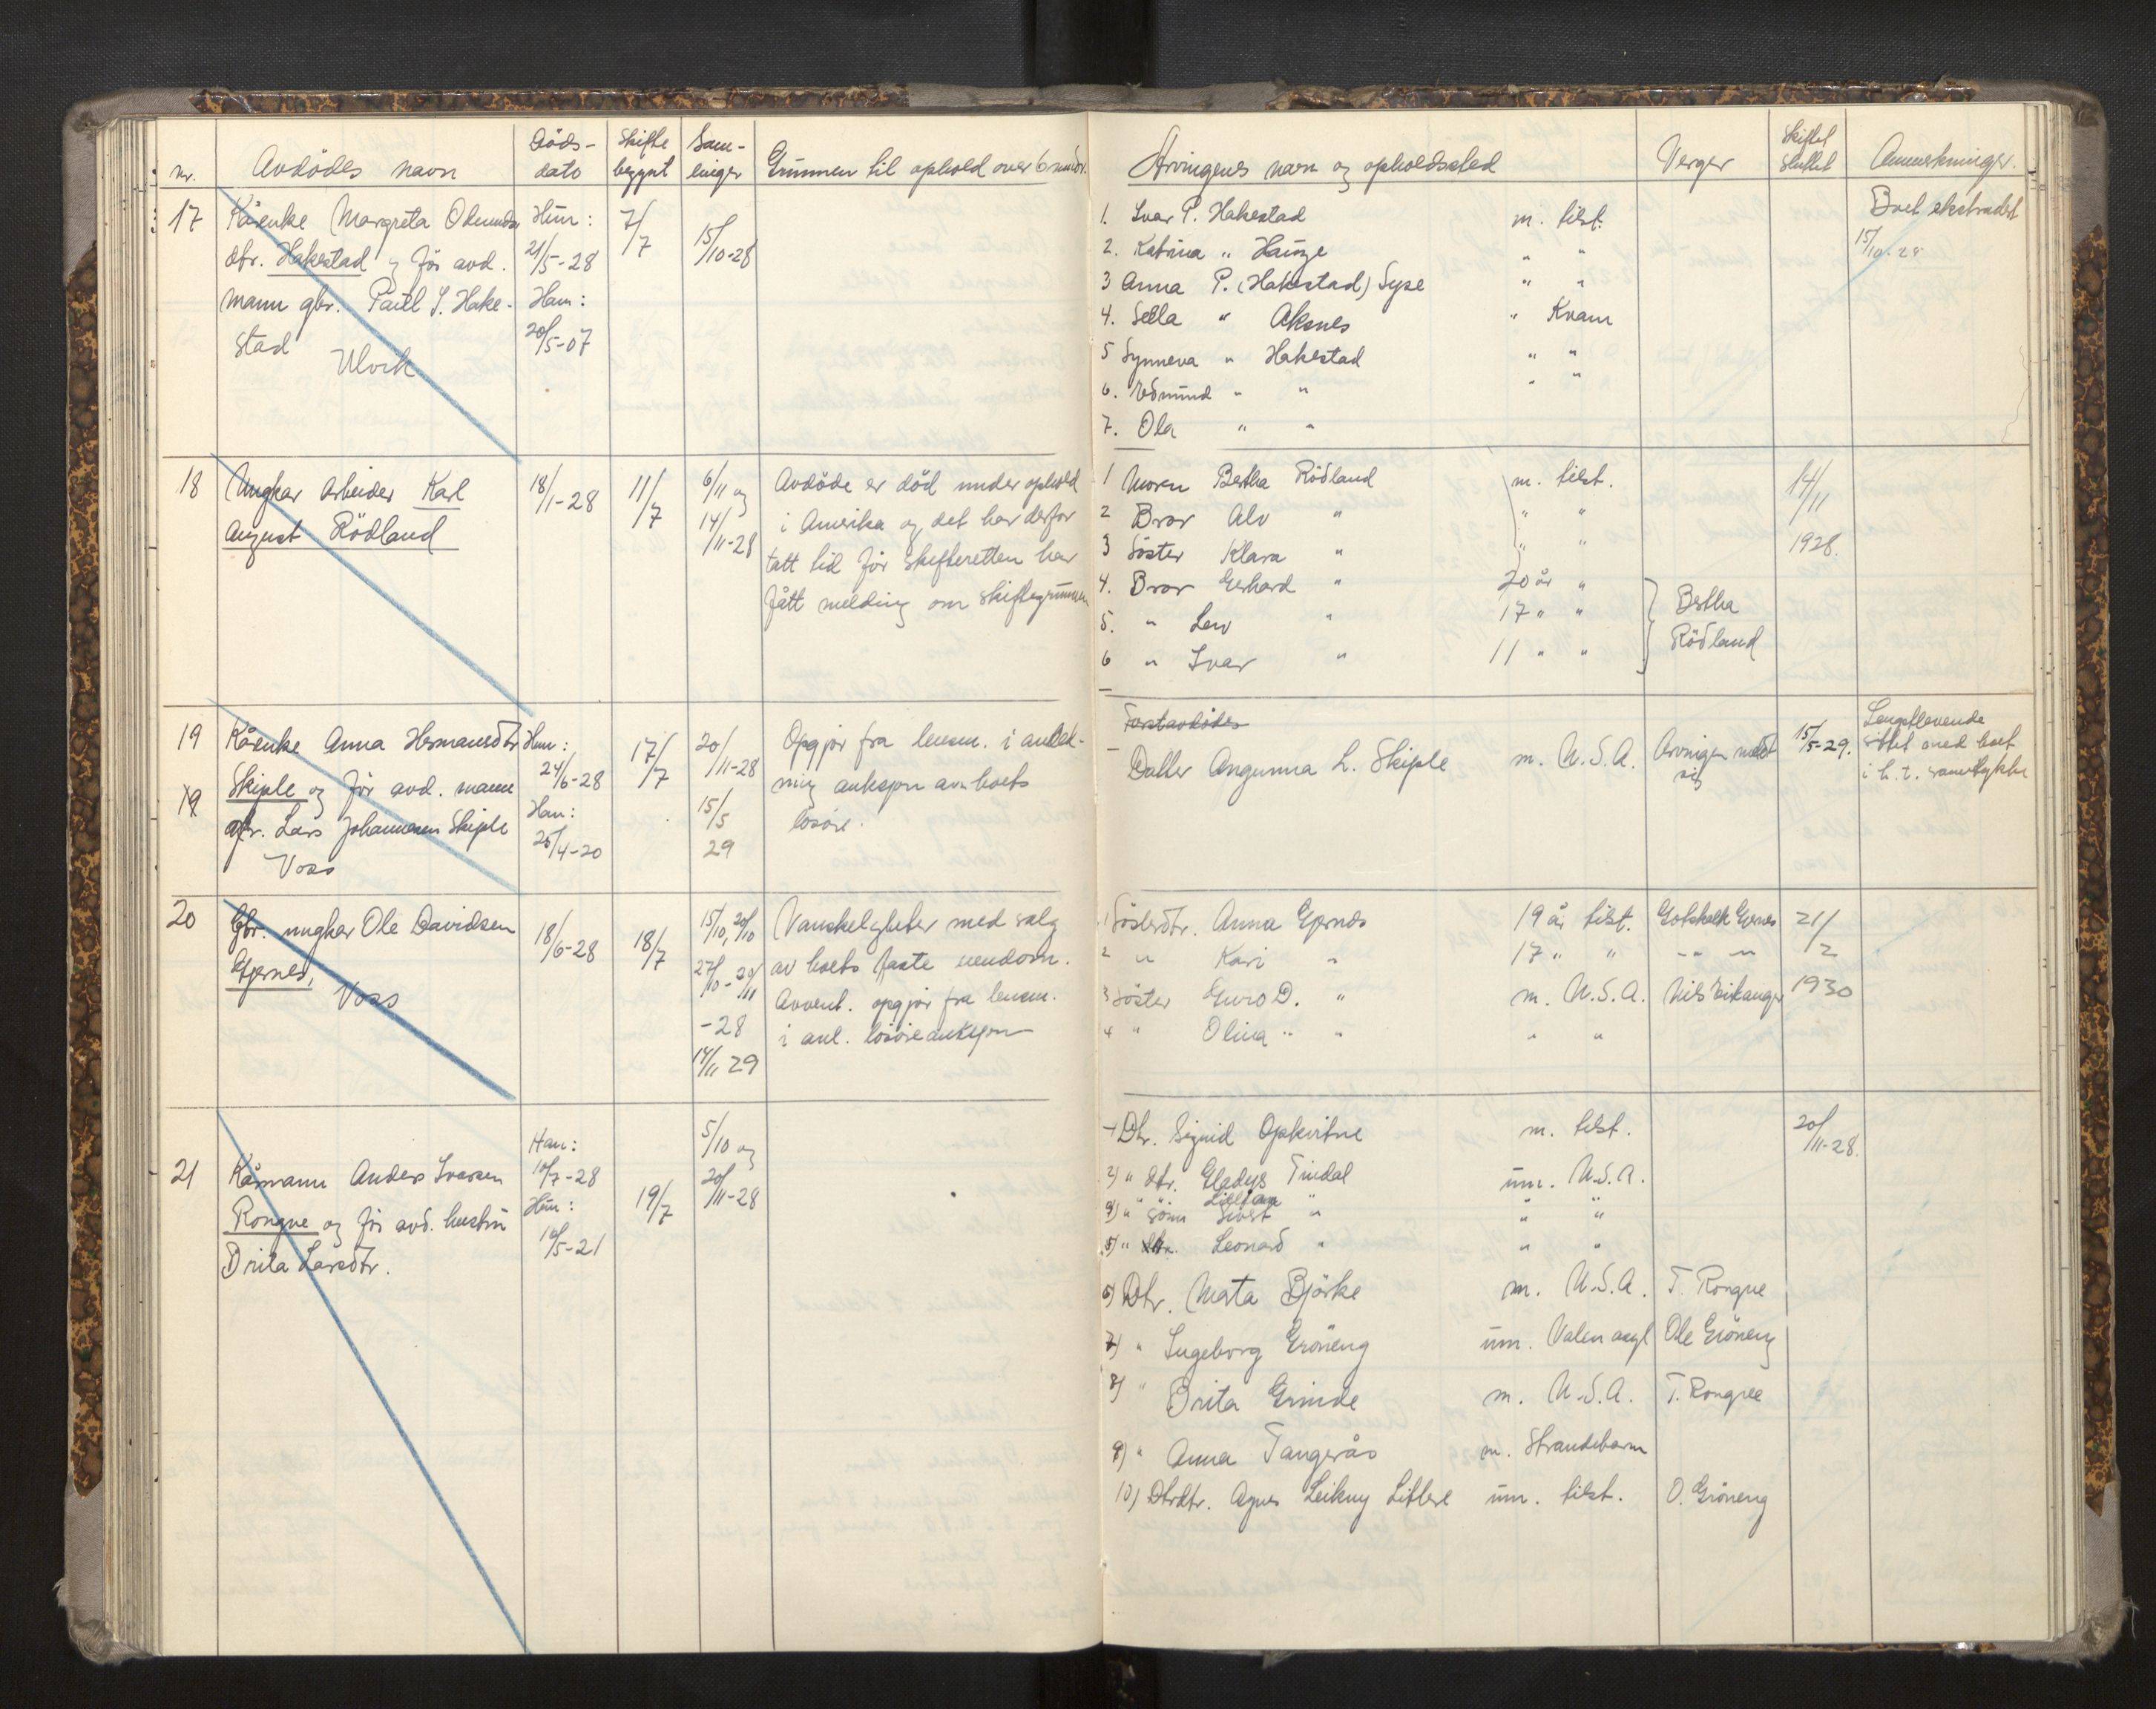 nr. Avdödes navn Döds-dato Skifte begynt Sam-linger Grunnen til ophold over 6 mndr. Arvingens navn og opholdssted Verger Skiftet sluttet Anmerkninger.
17 Kårenke Margreta Odmunds Hun: 7/7 15/10-28
dtr. Hakestad og för avd. 21/5-28
mann gbr. Paul I. Hake- Han:
stad 20/5-07
Ulvik
1. Ivar P. Hakestad m. tilst. Boet ekstradert
2. Katrina " Hauge " " 15/10-28
3 Anna P. (Hakestad) Syse " "
4. Sella " Aksnes " Kvam
5 Synneva " Hakestad " "
6. Edmund " " " "
7. Ola " "
18 Ungkar arbeider Karl 18/1-28 11/7 6/11 og Avdöde er död under ophold
August Rödland 14/11-28 i Amerika og det har derfor
tatt tid för skifteretten har
fått melding om skiftegrunnen
1 Moren Bertha Rödland m. tilst. 14/11
2 Bror Alv " " "
3 Söster Klara " " " 1928.
4. Bror Gerhard " 20 år "
5. " Leiv " 17 " " Bertha
6 " Ivar " 11 " " Rödland
19 Kårenke Anna Hermansdtr Hun: 17/7 20/11-28 Opgjör fra lensm. i anled-
Skiple og för avd. mann 24/6-28 ning auksjon av boets
19 gbr. Lars Johannesen Skiple Han: 15/5 lösöre.
Voss 25/4-20 29
Forstavdödes
Datter Angunna L. Skiple m. U.S.A. Arvingen meldt sig 15/5-29. Lengstlevende
sittet med boet
i h. t. samtykke
20 Gbr. ungkar Ole Davidsen 18/6-28 18/7 15/10, 20/10 Vanskeligheter med salg
Gjernes, 27/10-20/11 av boets faste eiendom.
Voss -28 Avvent. opgjör fra lensm.
14/11 29 i anl. lösöreauksjon
1 Sösterdtr. Anna Gjernes 19 år tilst. Gotskalk Gjernes 21/2
2 " Kari " 17 " " " "
3 Söster Guro D. " m. U.S.A. Nils Eikanger 1930
4 " Olina " " " "
21 Kårmann Anders Ivarsen Han: 19/7 5/10 og
Rongve og för avd. hustru 10/7-28 20/11-28
Brita Larsdtr. Hun:
10/5-21
Dtr. Sigrid Opkvitne m. tilst. 20/11-28.
2) " dtr. Gladys Tindal um. U.S.A.
" " Lillian "
4) " sönn Sivert " " "
5) " Leonard " " "
6) Dtr. Marta Björke m. U.S.A. T. Rongve
7) " Ingeborg Gröneng um. Valen asyl Ole Gröneng
8) " Brita Grinde m. U.S.A. T. Rongve
9) " Anna Tangerås m. Strandebarm
10) Dtrdtr. Agnes Leikny Litlere um. tilst. O. Gröneng